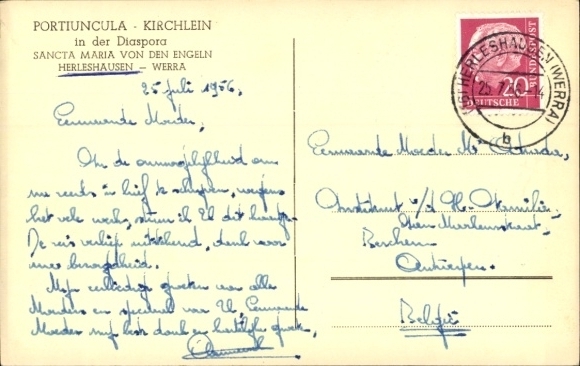 PORTIUNCULA - KIRCHLEIN
in der Diaspora
SANCTA MARIA VON DEN ENGELN
HERLESHAUSEN - WERRA
25 juli 1956,
Eerwaarde Moeder,
In de onmogelijkheid om
nu reeds in brief te schrijven, wegens
het vele werk, stuur ik U dit kaartje.
De reis verliep uitstekend, dank voor
uwe bezorgdheid.
Mijn groeten voor alle
Moeders en speciaal van U, Eerwaarde
Moeder mijn dank en hartelijke groeten,
DEUTSCHE BUNDESPOST
20
HERLESHAUSEN (WERRA)
25.7.
b
Eerwaarde Moeder M.
Instituut v/d H. Familie
Berchem
Antwerpen.
België